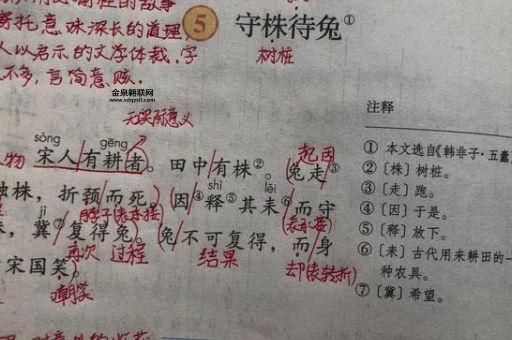 寄托意味深长的道理,
人以启示的文学体裁,字
不多,言简意赅。
金泉翱联网
www.sdqyslt.com
5 守株待兔①
树桩
无实际意义
sòng gēng
人物 宋人有耕者。田中有株②。兔走③
起因
shì lěi
触株,折颈而死。因④释⑤其耒⑥而守
脖子 表承接 表承接
jì
株,冀⑦复得兔。兔不可复得,而身
再次 过程 结果 却(表转折)
宋国笑。
嘲笑
注释
① 本文选自《韩非子·五蠹
② 〔株〕树桩。
③ 〔走〕跑。
④ 〔因〕于是。
⑤ 〔释〕放下。
⑥ 〔耒〕古代用来耕田的一
种农具。
⑦ 〔冀〕希望。